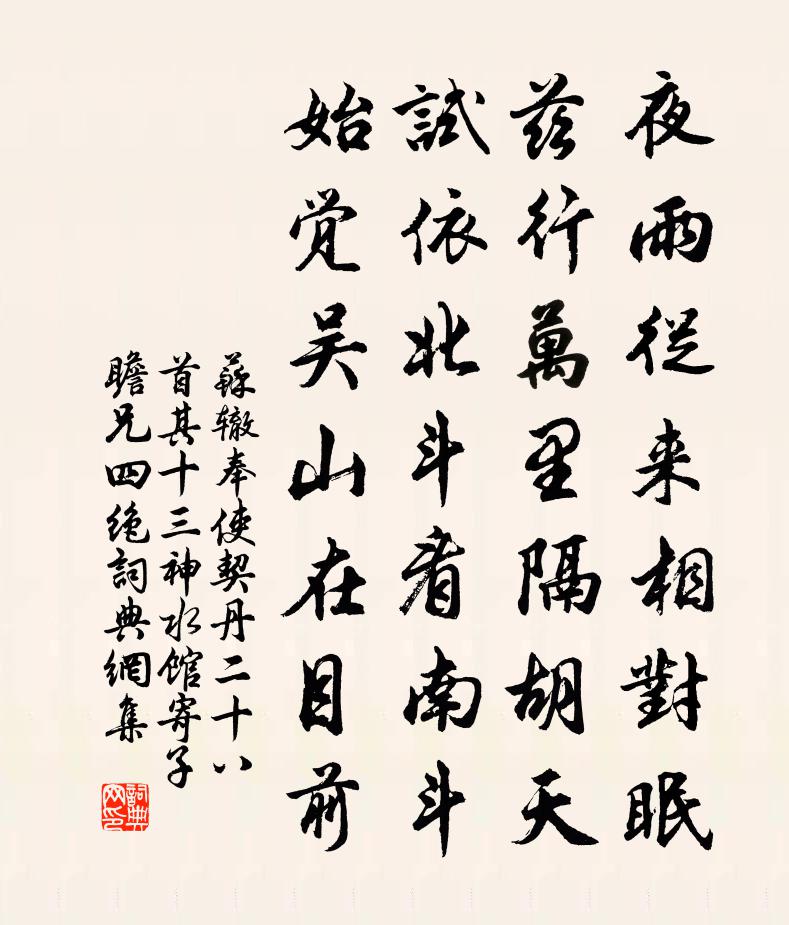 夜雨從来相對眠
茲行萬里隔胡天
試依北斗看南斗
始覺吴山在目前
蘇辙奉使契丹二十八
首其十三神水館寄子
瞻兄四绝詞典網集
詞典网印